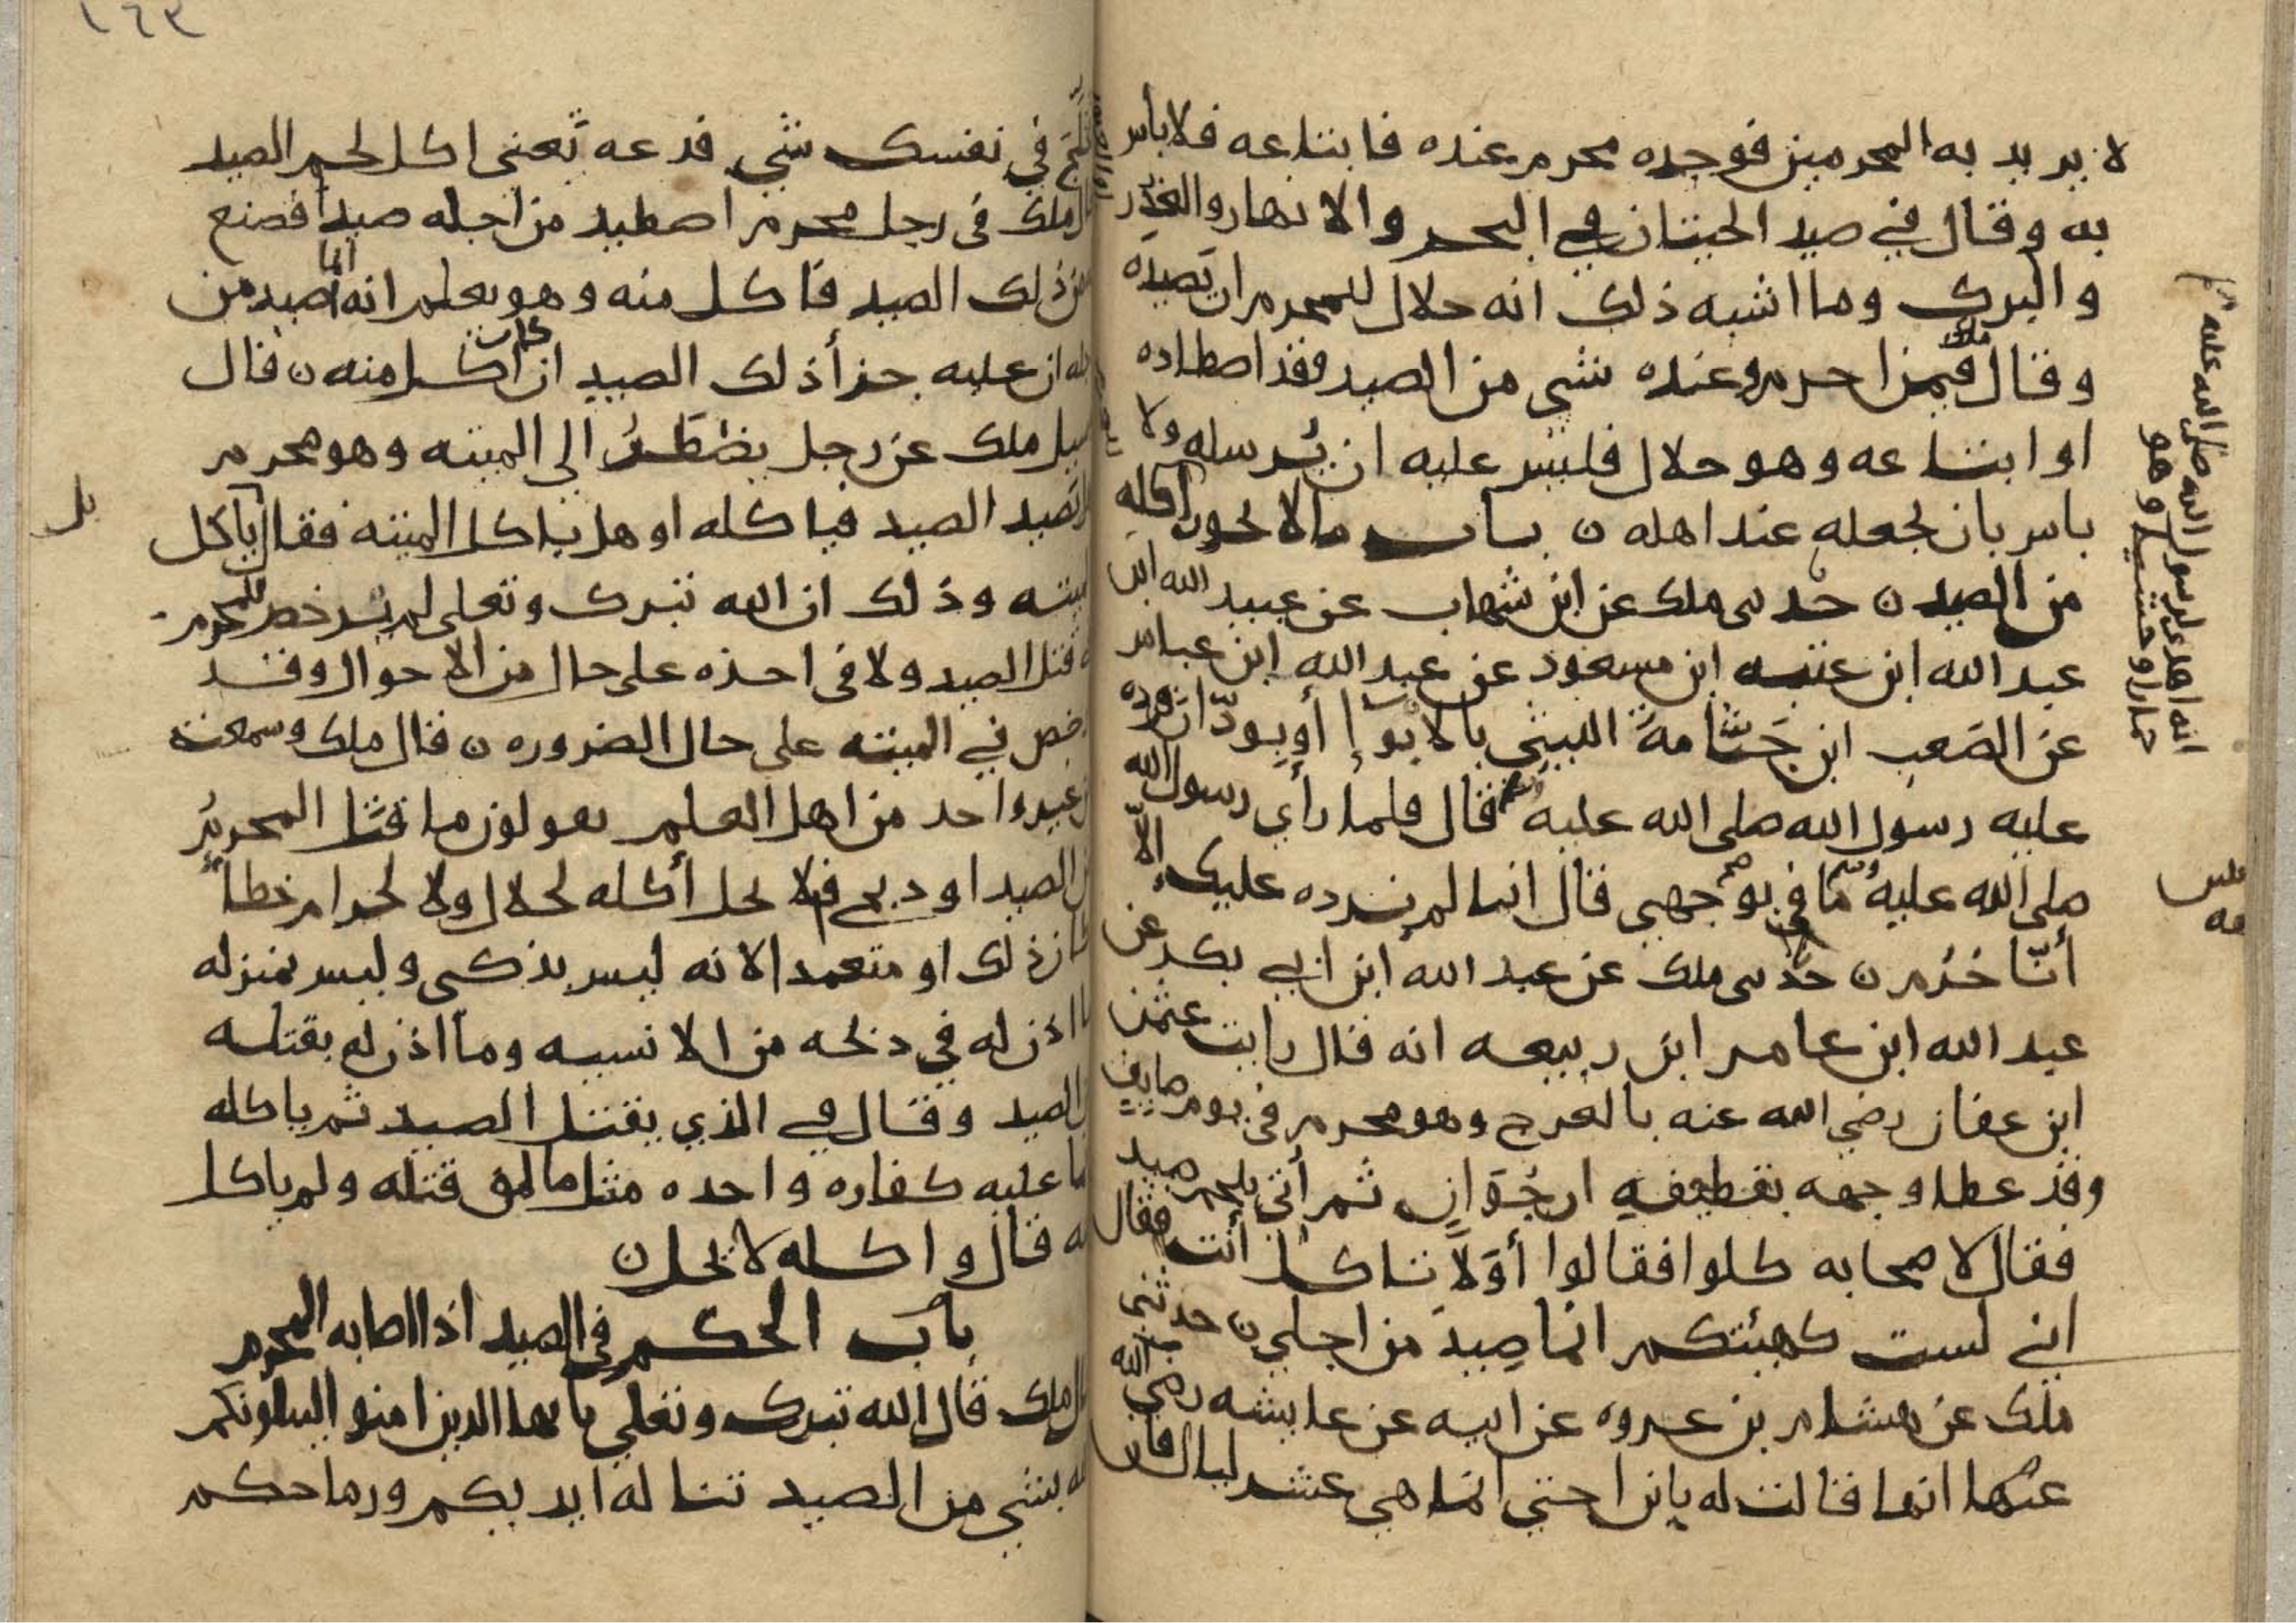 لا يريد به المحرمين فوجده محرم عنده فابتاعه فلا بأس
به وقال في صيد الحيتان في البحر والانهار والغدر
والبرك وما اشبه ذلك انه حلال للمحرم ان تصيده
وقال ملك فيمن احرم وعنده شي من الصيد وقد اصطاده
او ابتاعه وهو حلال فليس عليه ان يُرسله ولا
باس بان يجعله عند اهله ن باب ما لا يحوز اكله
من الصيد ن حدثنى ملك عن ابن شهاب عن عبيد الله ابن
عبد الله ابن عتبه ابن مسعود عن عبد الله ابن عباس
عن الصَعب ابن جَثّامةَ الليثي بالابْوإ أو بودّان فرده
عليه رسول الله صلى الله عليه وسلم قال فلما رأي رسول الله
صلى الله عليه وسلم ما في وجهي قال انا لم نردده عليك إلاّ
أنّا حُرُم ن حدثنى ملك عن عبد الله ابن ابي بكر عن
عبد الله ابن عامر ابن ربيعه انه قال رايت عثمن
ابن عفان رضي الله عنه بالعرج وهو محرم في يوم صايف
وقد غطا وجهه بقطيفهِ ارجُوَانٍ ثم أتي بلحم صيد
فقال لاصحابه كلوا فقالوا أوَلاَ تاكل أنت فقال
اني لست كهيئتكم انما صِيدَ من اجلي ن حدثني
ملك عن هشام بن عروه عن ابيه عن عايشه رضي الله
عنها انها قالت له يا بن اختي انما هي عشر ليال فان
انه اهدى لرسول الله صلى الله عليه وسلم
حمارا وحشيا وهو
١٦٣
تخلّج في نفسك شي فدعه تَعنى اكل لحم الصيد
قال ملك في رجل محرم اصطيد من اجله صيد فصنع
له من ذلك الصيد فاكل منه وهو يعلم انه انما صيد من
اجله ان عليه جزأ ذلك الصيد ان كان اكل منه ن قال
سيل ملك عن رجل يضْطَرُ الي الميته وهو محرم
ايصيد الصيد فياكله او هل ياكل الميته فقال بل ياكل
الميته وذلك ان الله تبرك وتعلى لم يُرخص للمحرم
في قتل الصيد ولا في اخذه على حال من الاحوال وقد
رخص في الميته على حال الضروره ن قال ملك وسمعت
غير واحد من اهل العلم يقولون ما قتل المحرمُ
من الصيد او ذبح فلا يحل أكله لحلال ولا لحرام خطاً
كان ذلك او متعمدا لانه ليس بذكي وليس بمنزله
ما اذن له في ذبحه من الانسيه وما اذن له بقتله
من الصيد وقال في الذي يقتل الصيد ثم ياكله
انما عليه كفاره واحده مثل ما لمن قتله ولم ياكل
منه قال واكله لا يحل ن
باب الحكم في الصيد اذا اصابه المحرم
قال ملك قال الله تبرك وتعلي يايها الذين امنوا ليبلونكم
الله بشي من الصيد تناله ايديكم ورماحكم